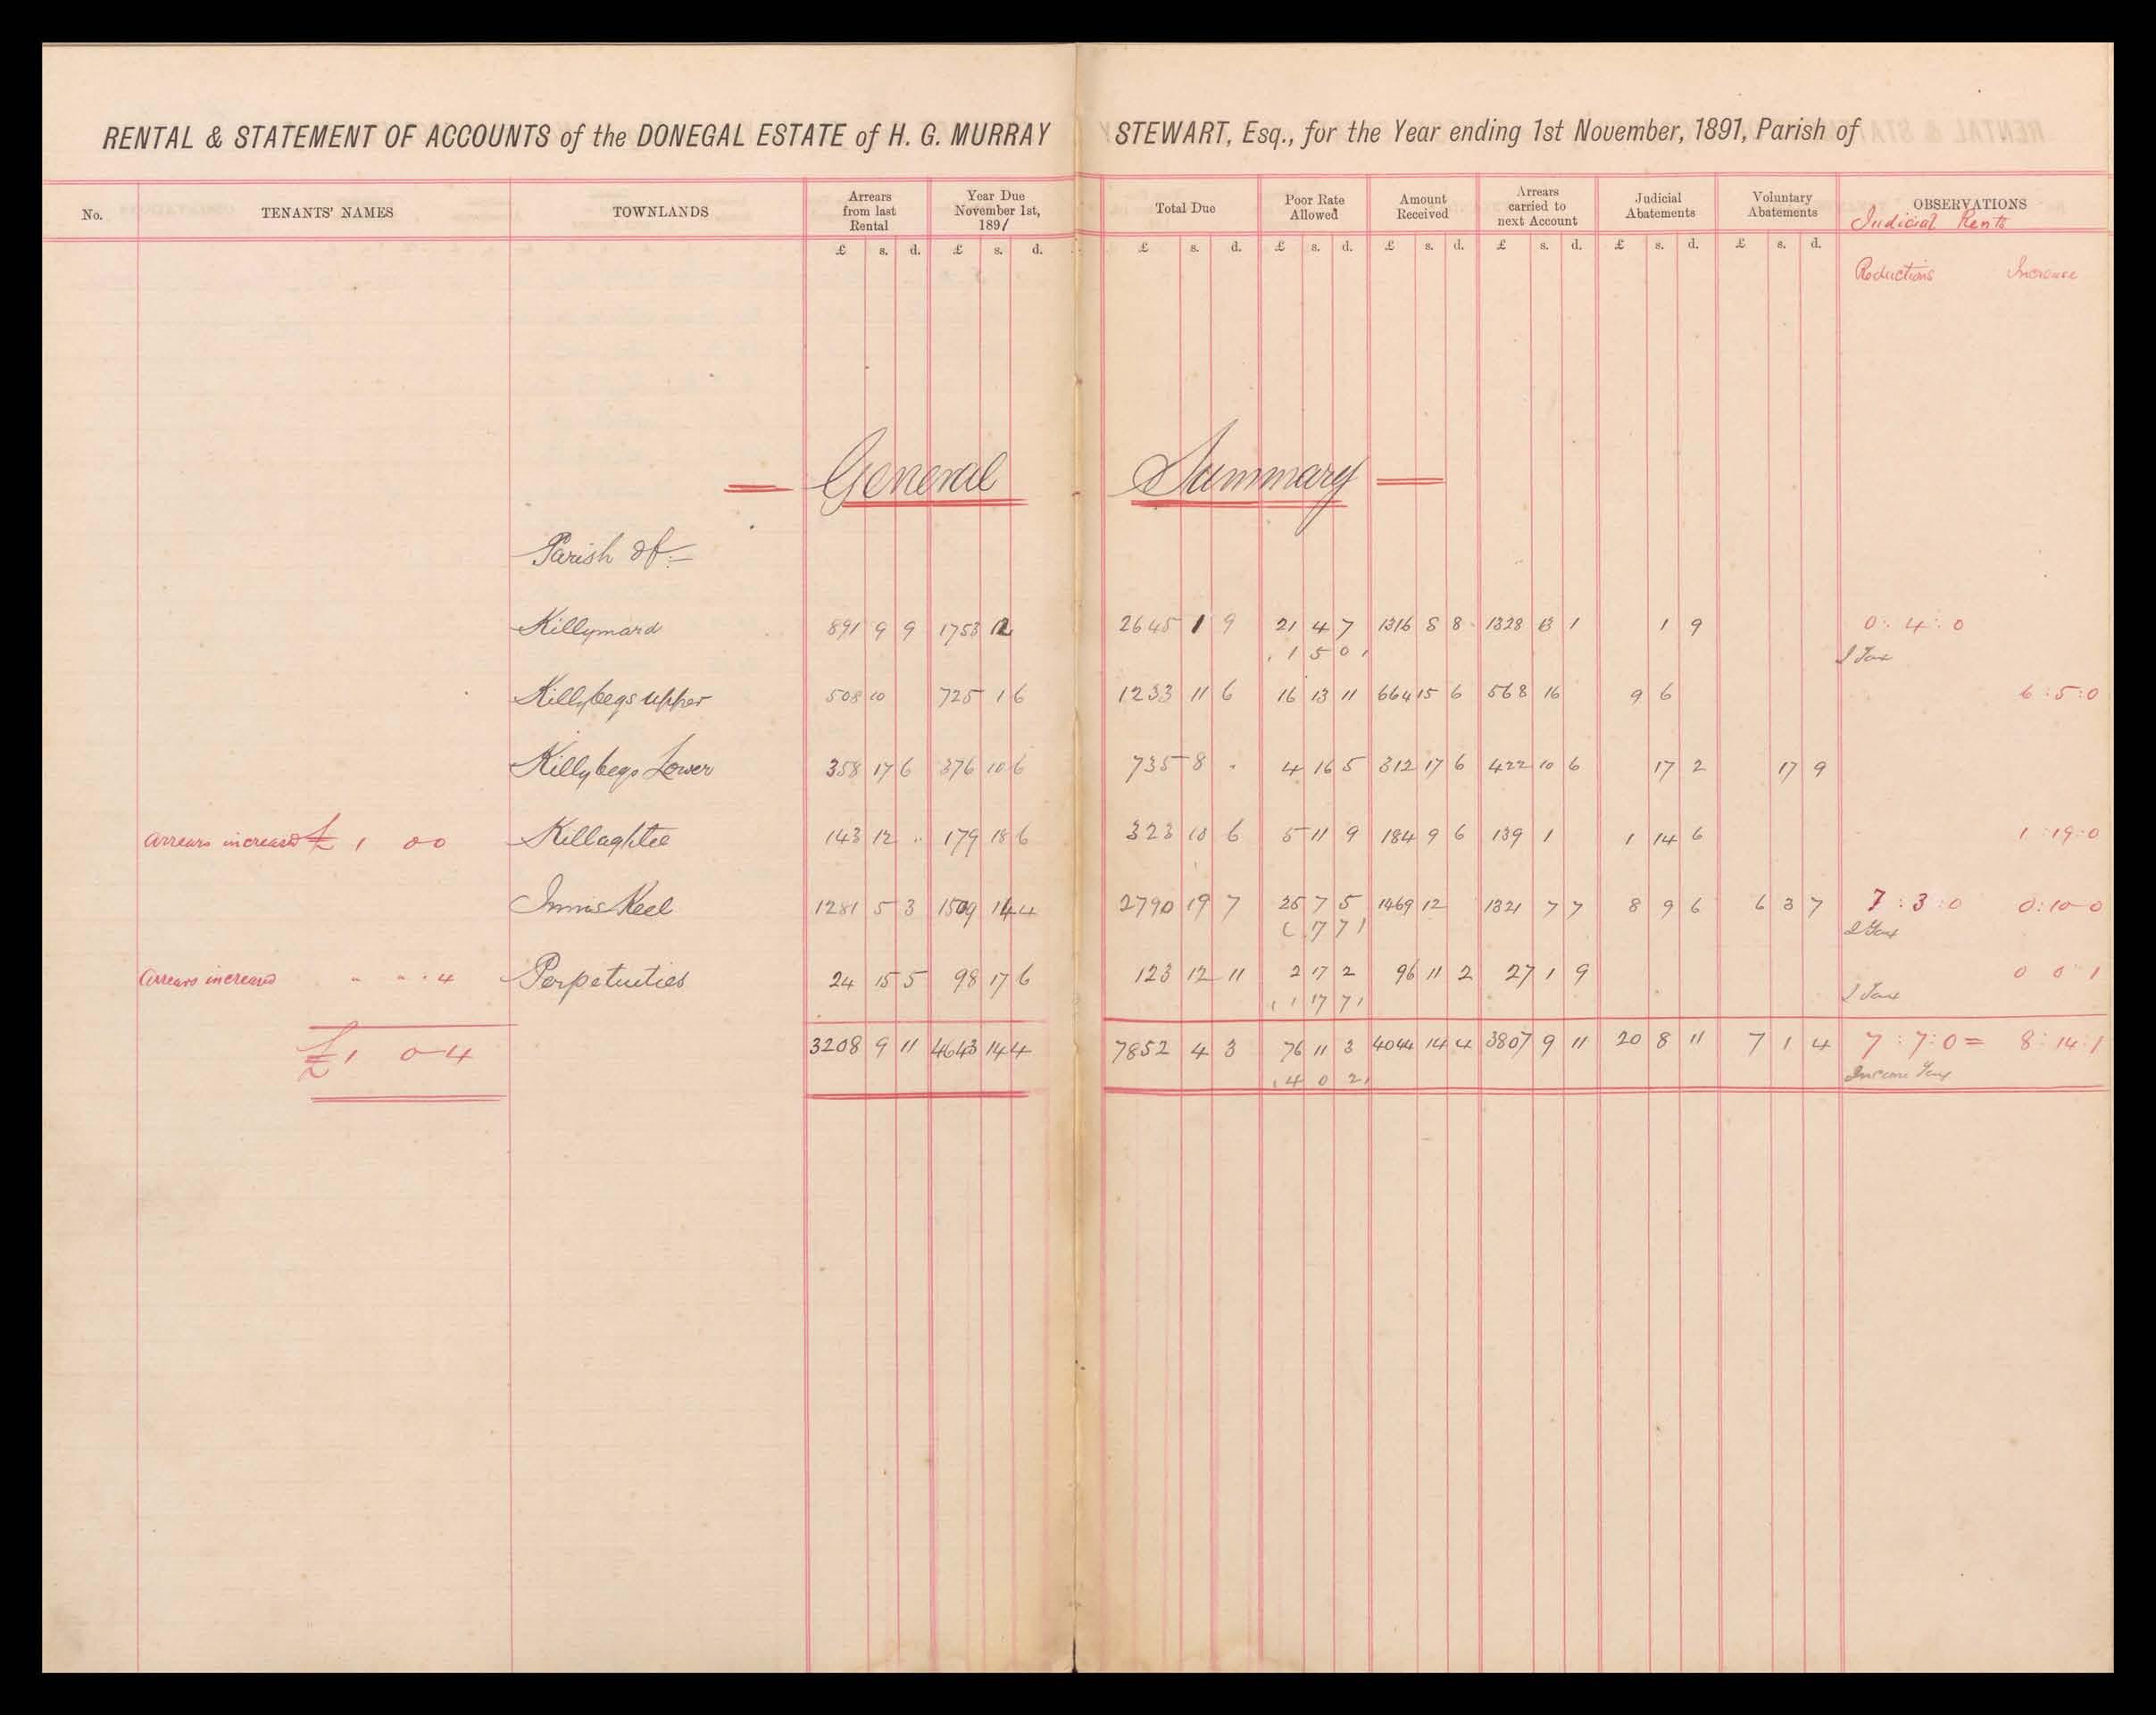 RENTAL & STATEMENT OF ACCOUNTS of the DONEGAL ESTATE of H. G. MURRAY STEWART, Esq., for the Year ending 1st November, 1891, Parish of
No. TENANTS' NAMES TOWNLANDS Arrears from last Rental Year Due November 1st, 1891 Total Due Poor Rate Allowed Amount Received Arrears carried to next Account Judicial Abatements Voluntary Abatements OBSERVATIONS
Judicial Rents
£ s. d. £ s. d. £ s. d. £ s. d. £ s. d. £ s. d. £ s. d. £ s. d.
Reductions Increase
General Summary
Parish of
Killymard 891 9 9 1753 12 2645 1 9 21 4 7 1316 8 8 1328 13 1 1 9 0 : 4 : 0
1 5 0 I Tax
Killybegs upper 508 10 725 1 6 1233 11 6 16 13 11 664 15 6 568 16 9 6 6 : 5 : 0
Killybegs Lower 358 17 6 376 10 6 735 8 - 4 16 5 312 17 6 422 10 6 17 2 17 9
Arrears increased £ 1 0 0 Killaghtee 143 12 .. 179 18 6 323 10 6 5 11 9 184 9 6 139 1 1 14 6 1 : 19 : 0
Innis Keel 1281 5 3 1509 14 4 2790 19 7 25 7 5 1469 12 1321 7 7 8 9 6 6 3 7 7 : 3 : 0 0 : 10 0
( 7 7 ) I Tax
Arrears increased " " . 4 Perpetuities 24 15 5 98 17 6 123 12 11 2 17 2 96 11 2 27 1 9 0 0 1
( 1 17 7 ) I Tax
£ 1 0 4 3208 9 11 4643 14 4 7852 4 3 76 11 3 4044 14 4 3807 9 11 20 8 11 7 1 4 7 : 7 : 0 = 8 : 14 : 1
( 4 0 2 ) Income Tax